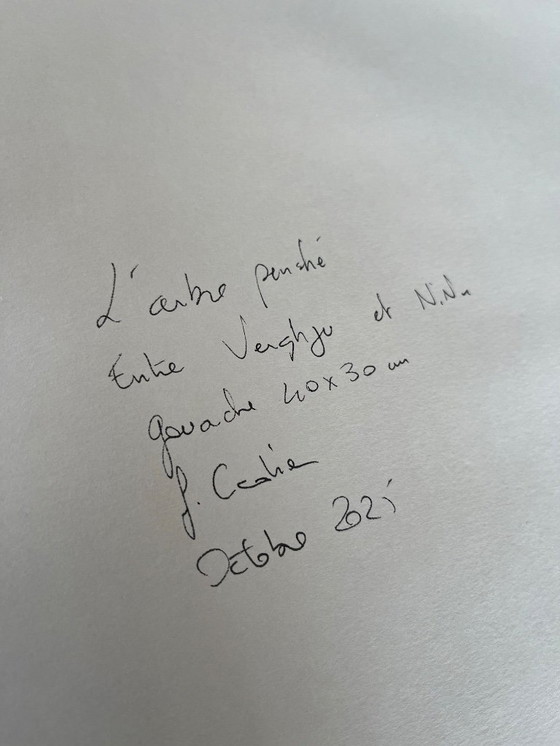 L'arbre penché
Entre Verghju et Ninu
gouache 40x30 cm
Octobre 2021